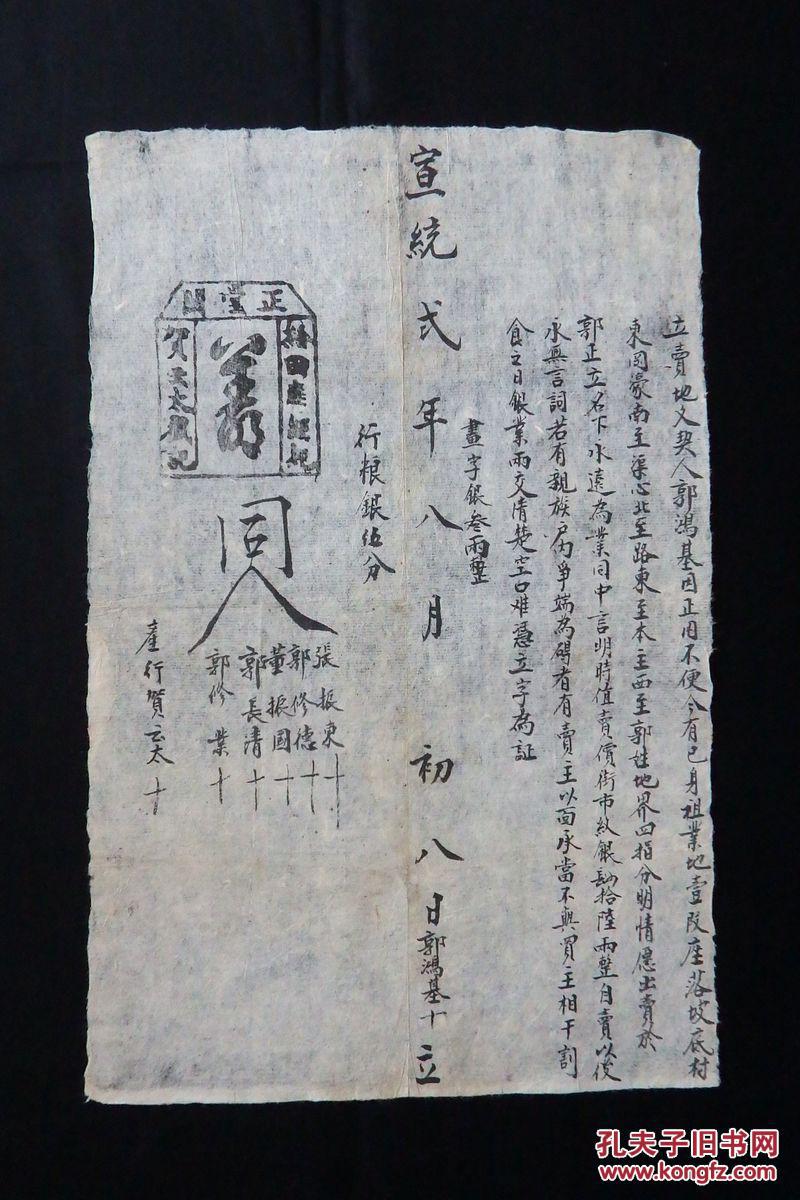 立賣地文契人郭鴻基因正用不便今有己身祖業地壹段座落坡底村
東岡濠南至渠心北至路東至本主西至郭姓地界四指分明情愿出賣於
郭正立名下永遠為業同中言明時值賣價街市紋銀拾陸兩整自賣以後
永無言詞若有親族户內爭端為碍者有賣主以面承當不與買主相干剖
食之日銀業兩交清楚空口难憑立字為証
畫字銀叁兩整
宣統弍年八月初八日郭鴻基十立
行粮銀伍分
同人
張振東十
郭修德十
董振國十
郭長清十
郭修業十
產行賀云太十
正堂
賀云太戳記
孔夫子旧书网
www.kongfz.com